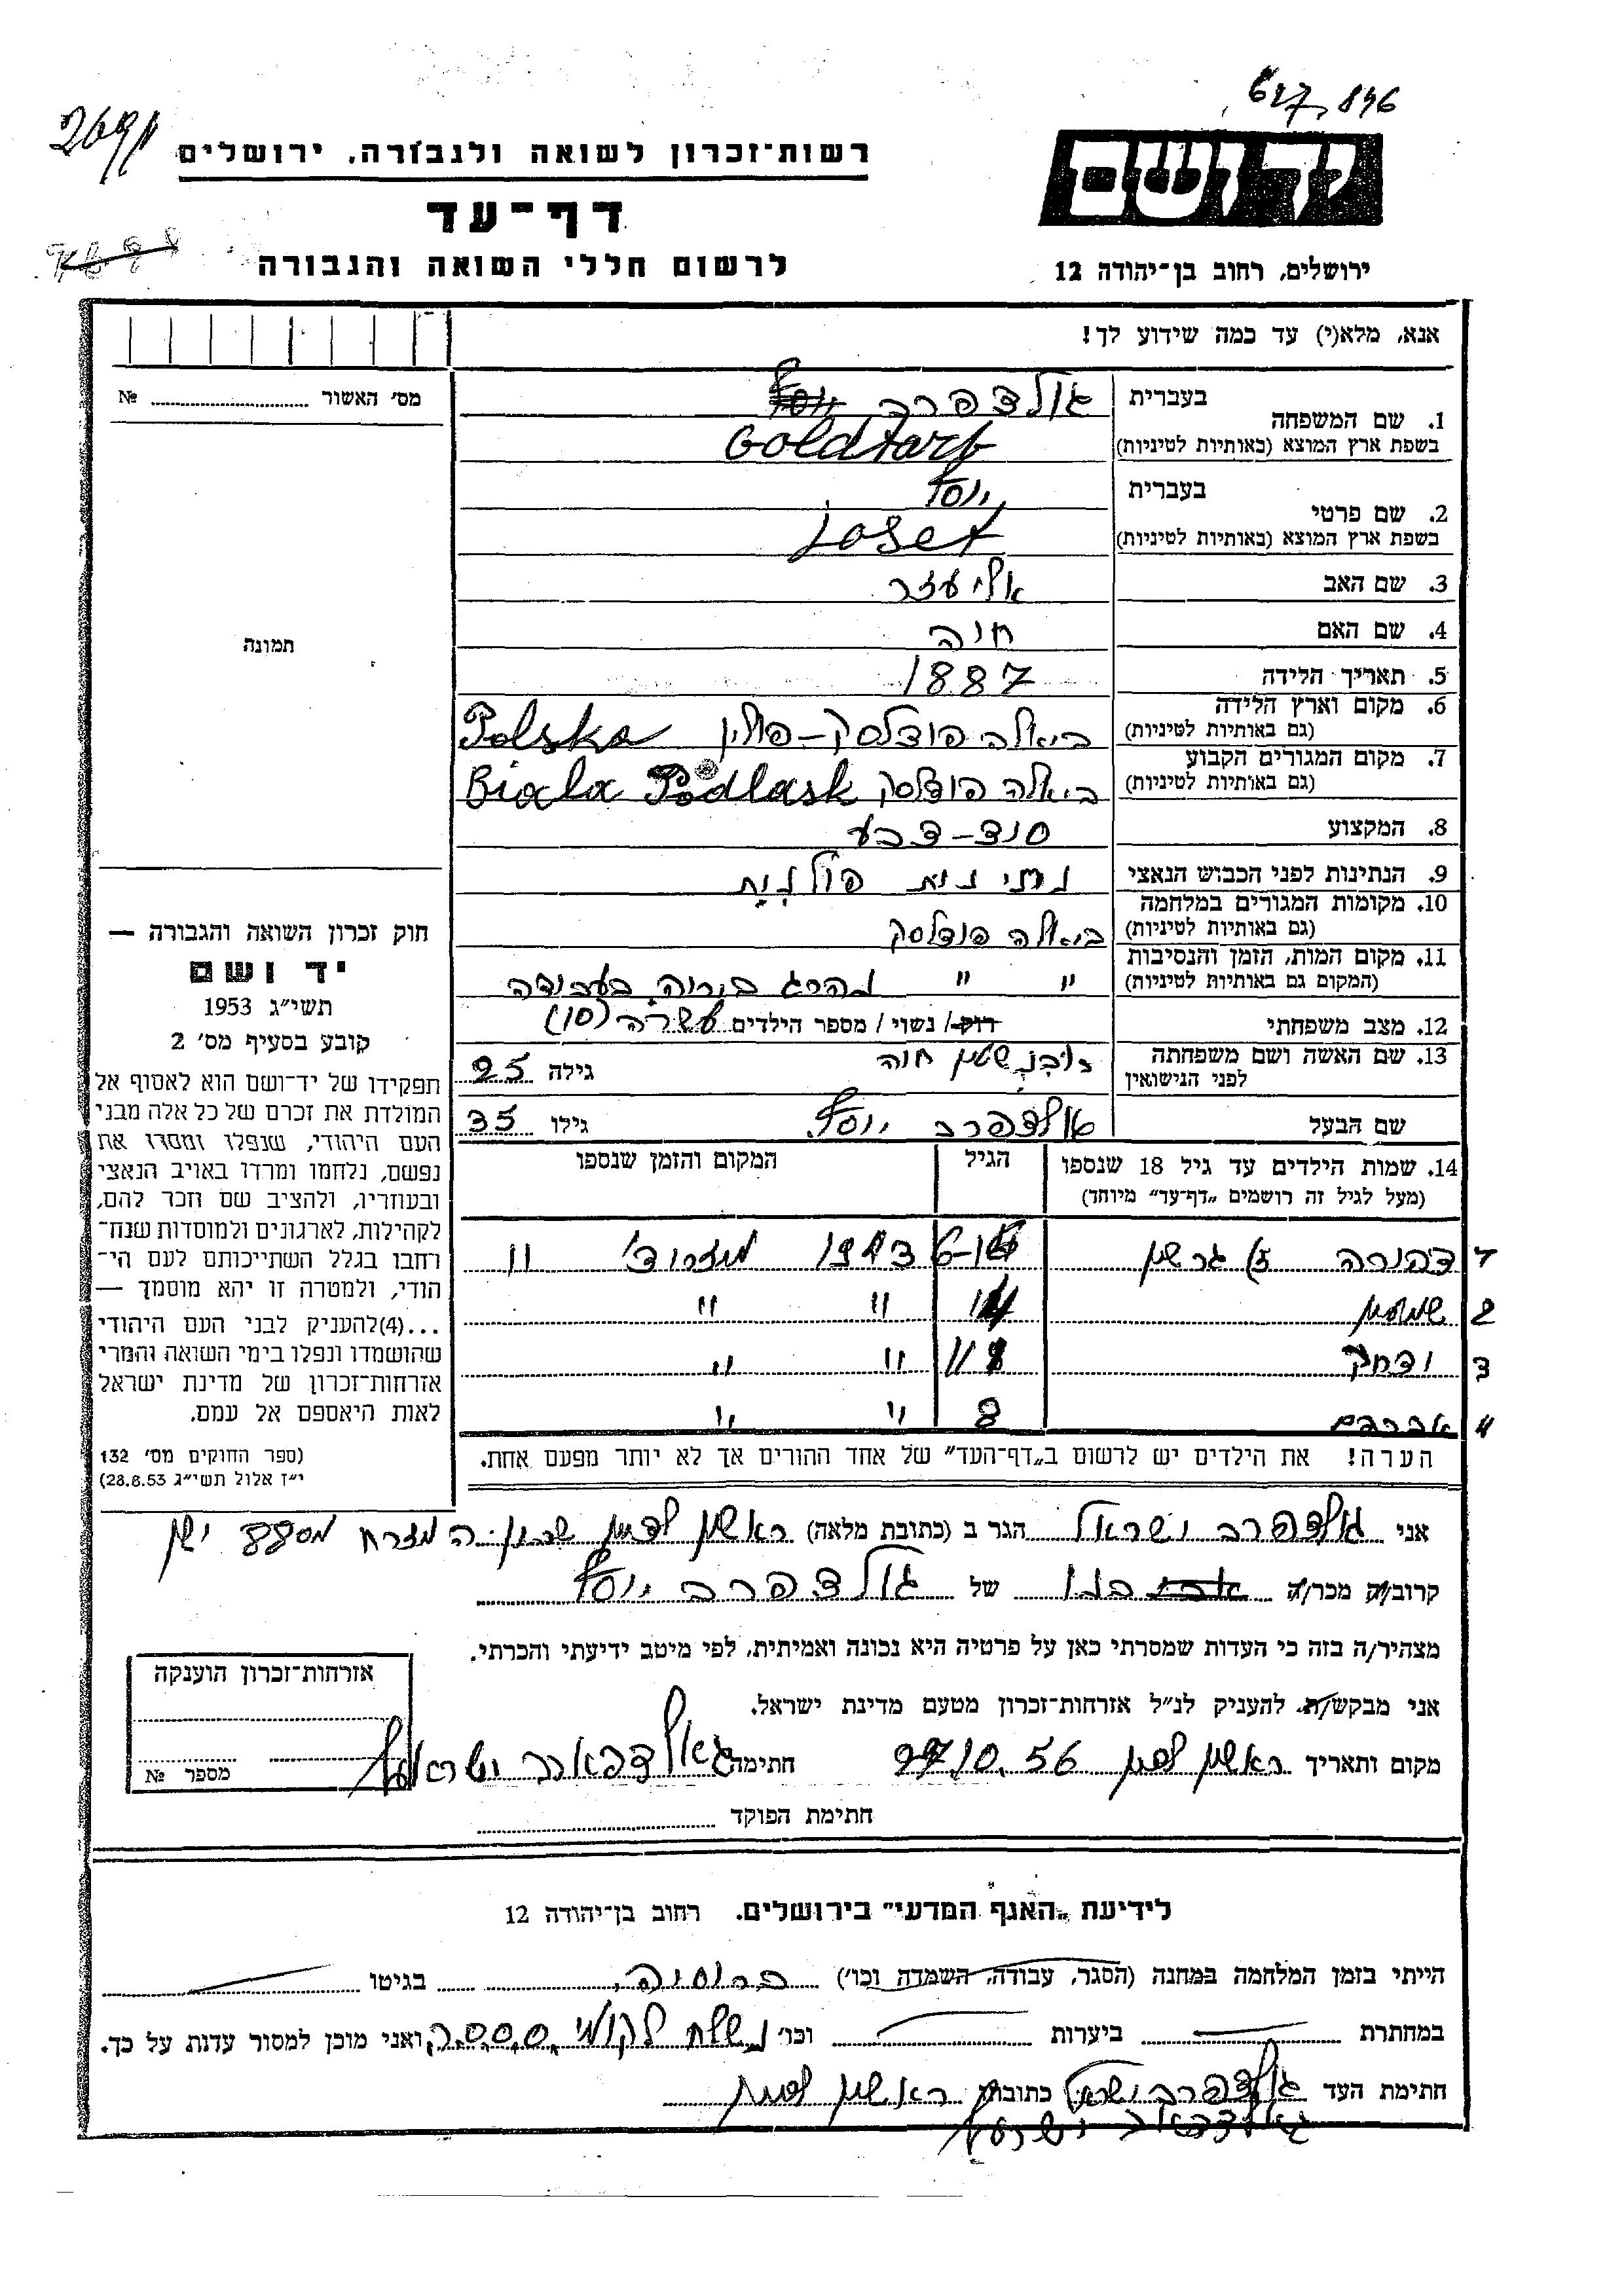 627,846
269/1
רשות־זכרון לשואה ולגבורה, ירושלים
יד ושם
דף־עד
לרשום חללי השואה והגבורה
ירושלים, רחוב בן־יהודה 12
אנא, מלא(י) עד כמה שידוע לך!
מס' האשור № 
1. שם המשפחה בעברית גולדפרב יוסף
בשפת ארץ המוצא (באותיות לטיניות) Goldfarb
2. שם פרטי בעברית יוסף
בשפת ארץ המוצא (באותיות לטיניות) Josef
3. שם האב אליעזר
4. שם האם חוה
תמונה
5. תאריך הלידה 1887
6. מקום וארץ הלידה (גם באותיות לטיניות) ביאלה פודלסק–פולין Polska
7. מקום המגורים הקבוע (גם באותיות לטיניות) ביאלה פודלסק Biala Podlask
8. המקצוע
9. הנתינות לפני הכבוש הנאצי נתינות פולנית
10. מקומות המגורים במלחמה (גם באותיות לטיניות) ביאלה פודלסק
11. מקום המות, הזמן והנסיבות (המקום גם באותיות לטיניות) " " נהרג ביריה בעבודה
12. מצב משפחתי רווק / נשוי / מספר הילדים עשרה (10)
13. שם האשה ושם משפחתה לפני הנישואין חוה גילה 25
שם הבעל גולדפרב יוסף גילו 35
14. שמות הילדים עד גיל 18 שנספו הגיל המקום והזמן שנספו
(מעל לגיל זה רושמים „דף־עד" מיוחד)
דבורה 1943 "
2 שמעון 14 " "
3 יצחק 11 " "
4 אברהם 8 " "
הערה! את הילדים יש לרשום ב„דף־העד" של אחד ההורים אך לא יותר מפעם אחת.
חוק זכרון השואה והגבורה —
יד ושם
תשי"ג 1953
קובע בסעיף מס' 2
תפקידו של יד־ושם הוא לאסוף אל
המולדת את זכרם של כל אלה מבני
העם היהודי, שנפלו ומסרו את
נפשם, נלחמו ומרדו באויב הנאצי
ובעוזריו, ולהציב שם וזכר להם,
לקהילות, לארגונים ולמוסדות שנח־
רחבו בגלל השתייכותם לעם הי־
הודי, ולמטרה זו יהא מוסמך —
...(4)להעניק לבני העם היהודי
שהושמדו ונפלו בימי השואה והמרי
אזרחות־זכרון של מדינת ישראל
לאות היאספם אל עמם.
(ספר החוקים מס' 132
י"ז אלול תשי"ג 28.8.53)
אני גולדפרב ישראל הגר ב (כתובת מלאה) ראשון לציון שכון המזרח
קרוב/ה מכר/ה בנו של גולדפרב יוסף
מצהיר/ה בזה כי העדות שמסרתי כאן על פרטיה היא נכונה ואמיתית, לפי מיטב ידיעתי והכרתי.
אני מבקש/ת להעניק לנ"ל אזרחות־זכרון מטעם מדינת ישראל.
מקום ותאריך ראשון לציון 27.10.56 חתימה גאלדפארב ישראל
אזרחות־זכרון הוענקה
מספר №
חתימת הפוקד
לידיעת „האגף המדעי" בירושלים. רחוב בן־יהודה 12
הייתי בזמן המלחמה במחנה (הסגר, עבודה, השמדה וכו') ברוסיה בגיטו
במחתרת ביערות וכו' נשלח לקומי ואני מוכן למסור עדות על כך.
חתימת העד גולדפרב ישראל כתובת ראשון לציון
גאלדפארב ישראל